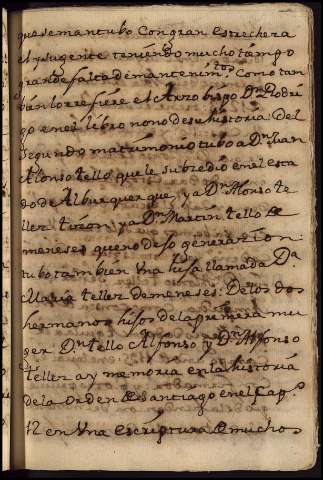 que se mantubo Con gran estrechera
el y su gente teniendo mucho tiempo
grande falta de mantenim.tos Como tan
bien lo rrefiere el Arzobispo Dn Rodri
go en el libro nono de su historia. Del
segundo matrimonio tubo a Dn Juan
Alonso tello que le subcedió en el esta
do de Alburquerque, ya Dn Alonso te
llez tizon, ya Dn Martin tello de
meneses que no dexo generazion
tubo tambien una hija llamada Da
Maria tellez de meneses. De los dos
hermanos hijos de la primera mu
ger Dn tello Alfonso y Dn Alfonso
tellez ay memoria en la historia
de la orden de Santiago en el Cap.o
12 en Una escriptura de muchos